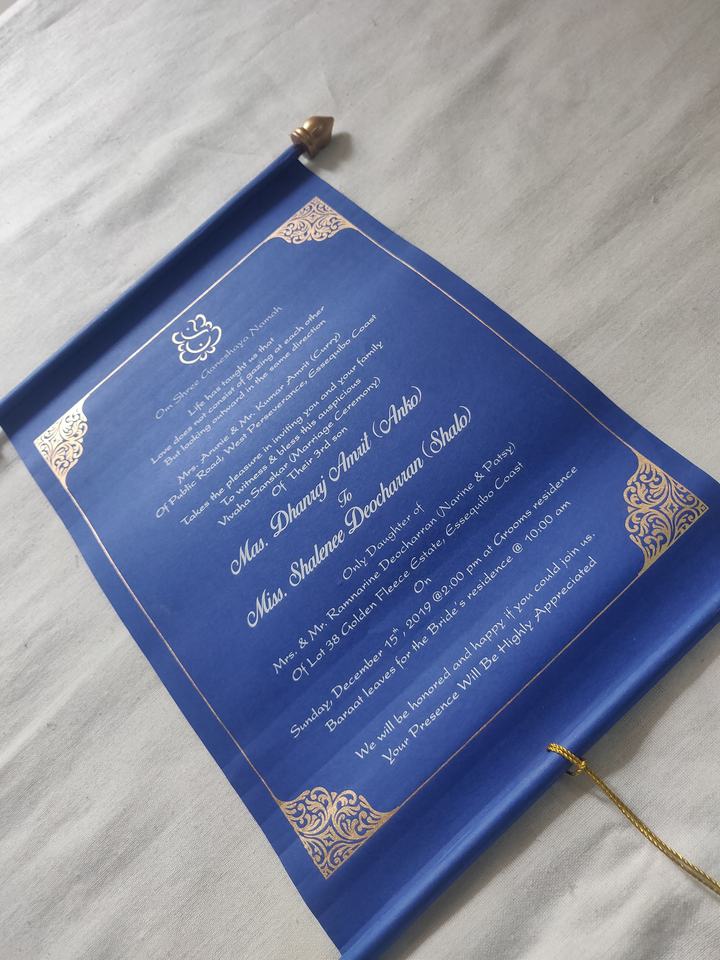 Om Shree Ganeshaya Namah
Life has taught us that
Love does not consist of gazing at each other
But looking outward in the same direction
Mrs. Annie & Mr. Kumar Amrit (Curry)
Of Public Road, West Perseverance, Essequibo Coast
Takes the pleasure in inviting you and your family
To witness & bless this auspicious
Vivaha Sanskar (Marriage Ceremony)
Of Their 3rd son
Mas. Dhanraj Amrit (Anko)
To
Miss. Shalenee Deocharran (Shalo)
Only Daughter of
Mrs. & Mr. Ramnarine Deocharran (Narine & Patsy)
Of Lot 38 Golden Fleece Estate, Essequibo Coast
On
Sunday, December 15th, 2019 @2:00 pm at Grooms residence
Baraat leaves for the Bride's residence @ 10:00 am
We will be honored and happy if you could join us.
Your Presence Will Be Highly Appreciated